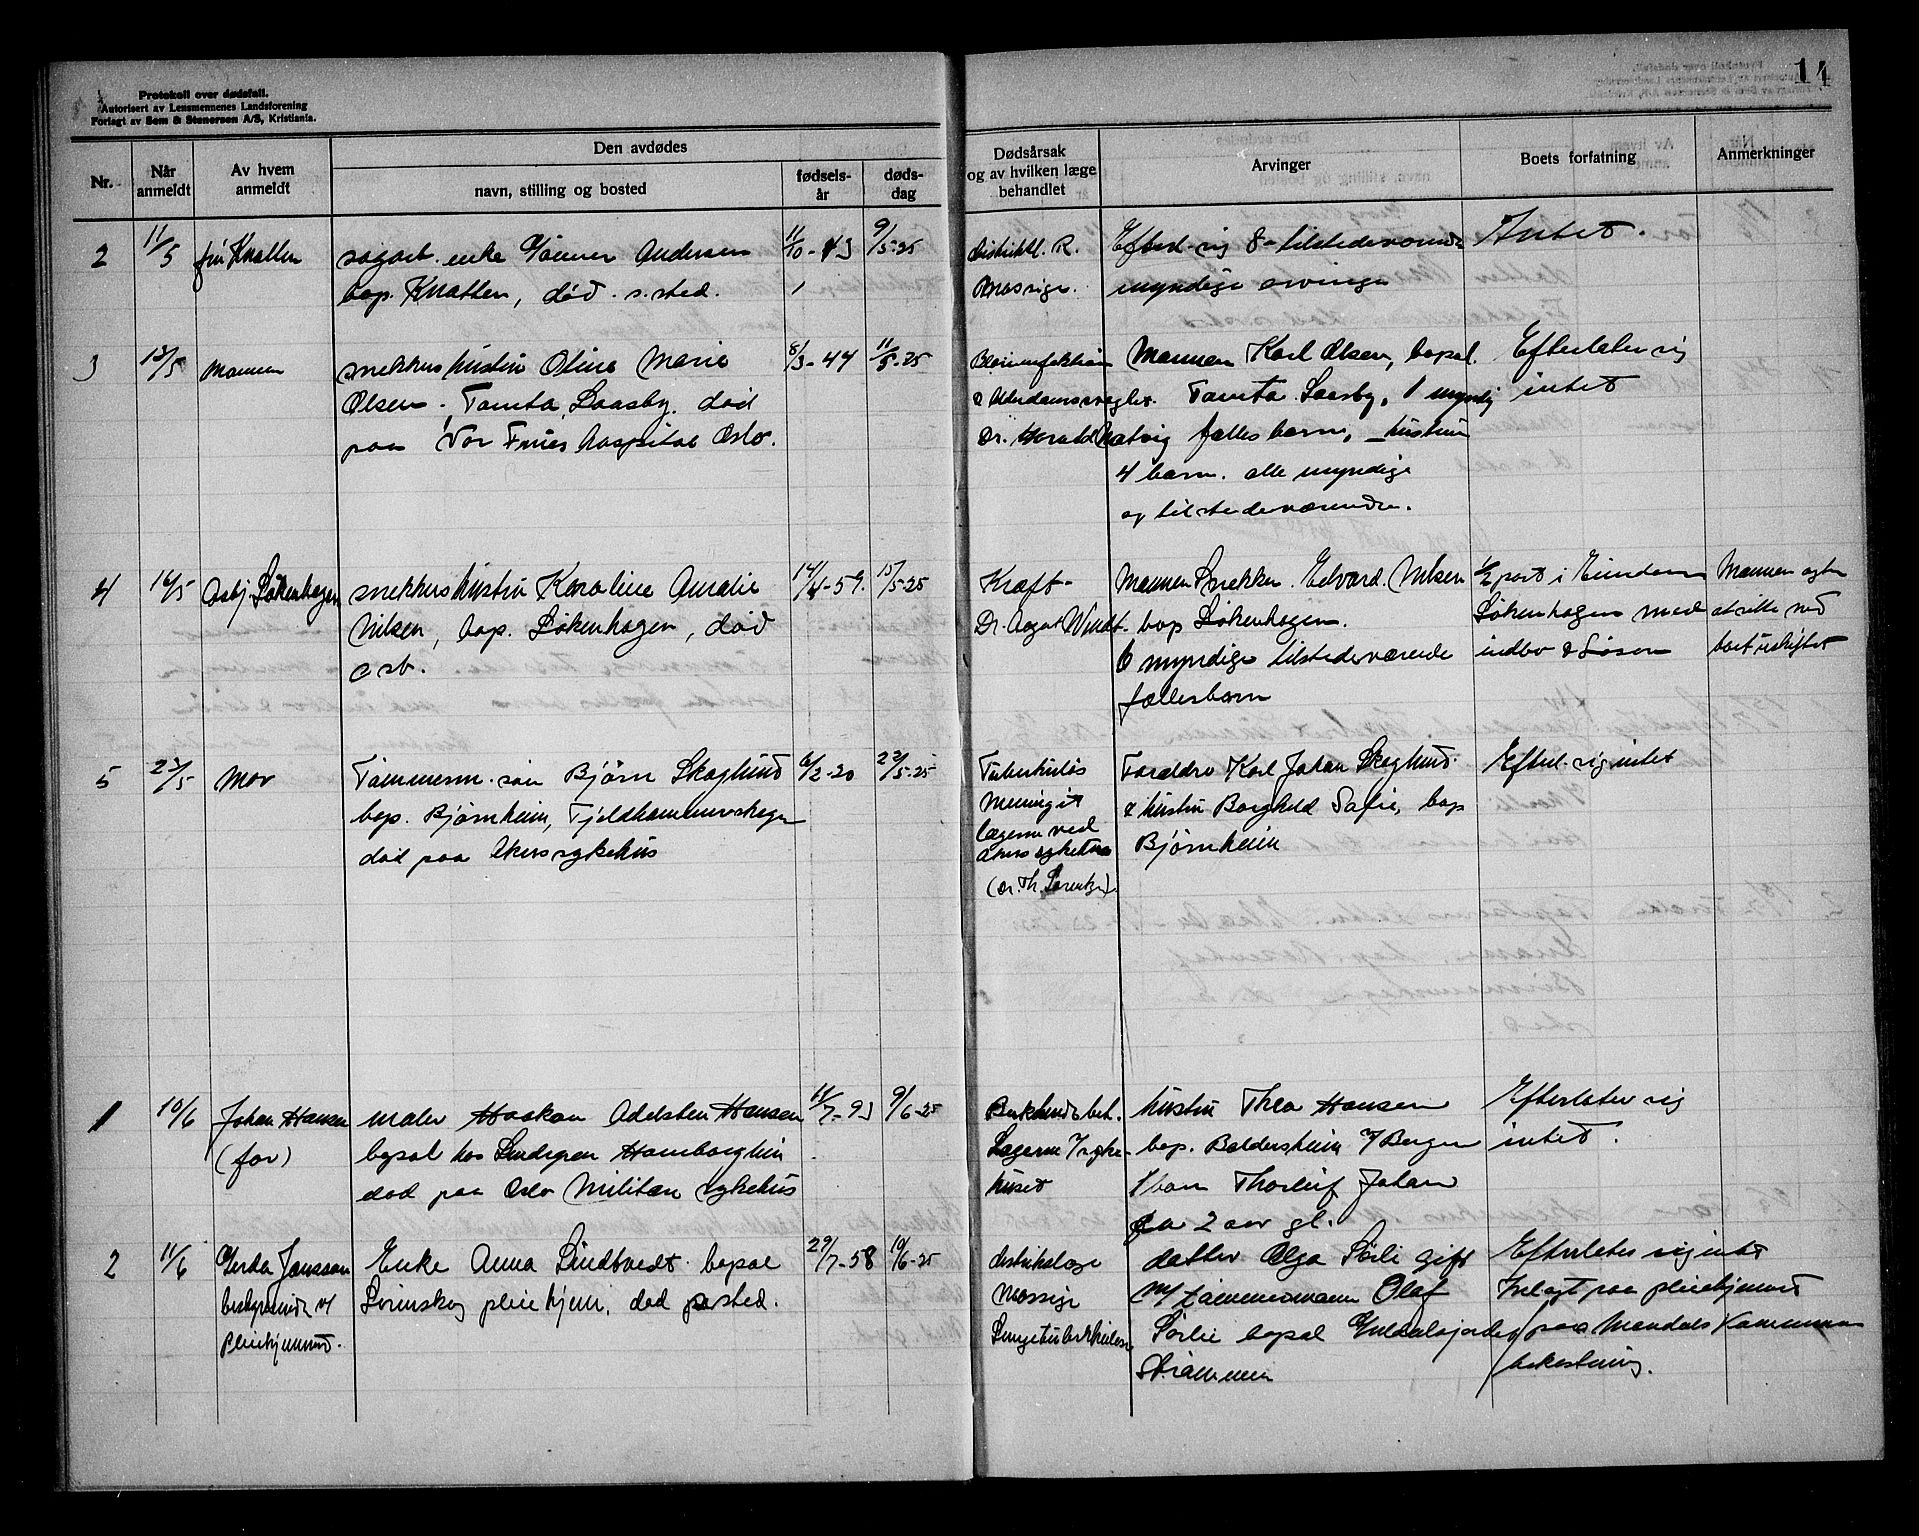 Protokoll over dødsfall.
Autorisert av Lensmennenes Landsforening
Forlagt av Sem & Stenersen A/S, Kristiania.
11
Nr.
Når anmeldt
Av hvem anmeldt
Den avdødes
navn, stilling og bosted
fødsels-år
døds-dag
Dødsårsak og av hvilken læge behandlet
Arvinger
Boets forfatning
Anmerkninger
2
11/5
fru Knatten
enke Gunner Andersen
bop. Knatten, død s. sted.
11/10-43
9/5-25
Distriktl. R.
Massige.
Efterl. sig 8 tilstedeværende
myndige arvinger
Intet.
3
13/5
Mannen
snekkerhustru Oline Marie
Olsen, Tomta, Laasby. død
paa Vor Frues hospital Oslo.
8/3-44
11/5-25
Blæreinfektion
& Alderdomssvaghet.
Dr. Harald Natvig
Mannen Karl Olsen, bopel.
Tomta Laasby, 1 myndig
fælles barn, hustrun
4 barn. alle myndige
og tilstedeværende.
Efterlater sig
intet
4
16/5
Asbj. Løkenhagen
snekkerhustru Karoline Amalie
Nilsen, bop. Løkenhagen, død
osb.
14/4-59.
15/5-25
Kræft
Dr. Aagot Windt.
Mannen Snekker Edvard Nilsen
bop Løkenhagen.
6 myndige tilstedeværende
fællesbarn
1/2 part i Eiendom
Løkenhagen med
indbo & Løsøre
Mannen agter
at sitte med
boet uskiftet
5
23/5
Mor
Tømmerm. søn Bjørn Skoglund
bop. Bjørnheim, Fjeldhammerskogen
død paa Akers sykehus
6/2-20
22/5-25
Tuberkuløs
Meningit
lægerne ved
Akers sykehus
(Dr. Th. Lorentzen).
Forældre Karl Johan Skoglund
& hustru Borghild Sofie, bop
Bjørnheim
Efterl. sig intet
1
10/6
Johan Hansen
(far)
maler Haakon Adelsten Hansen
bopæl hos Lindgren Hamborghim
død paa Oslo Militær sykehus
11/7-93
9/6-25
beh.
Lægerne v/syke-
huset
hustru Thea Hansen
bop. Baldersheim v/Bergen
1 barn Thorleif Johan
ca 2 aar gl.
Efterlater sig
intet.
2
11/6
Gerda Jansson
bestyrerinde v/
Pleiehjemmet.
Enke Anna Lindtvedt. bopæl
Lørenskog pleiehjem, død p.sted.
29/7-58
10/6-25
Distriktslæge
Massige
Lungetuberkulose
datter Olga Sørli gift
m/ tømmermann Olaf
Sørlie bopæl
Strømmen
Efterlater sig intet
Indlagt paa pleiehjemmet
paa Mandals Kommunes
bekostning.